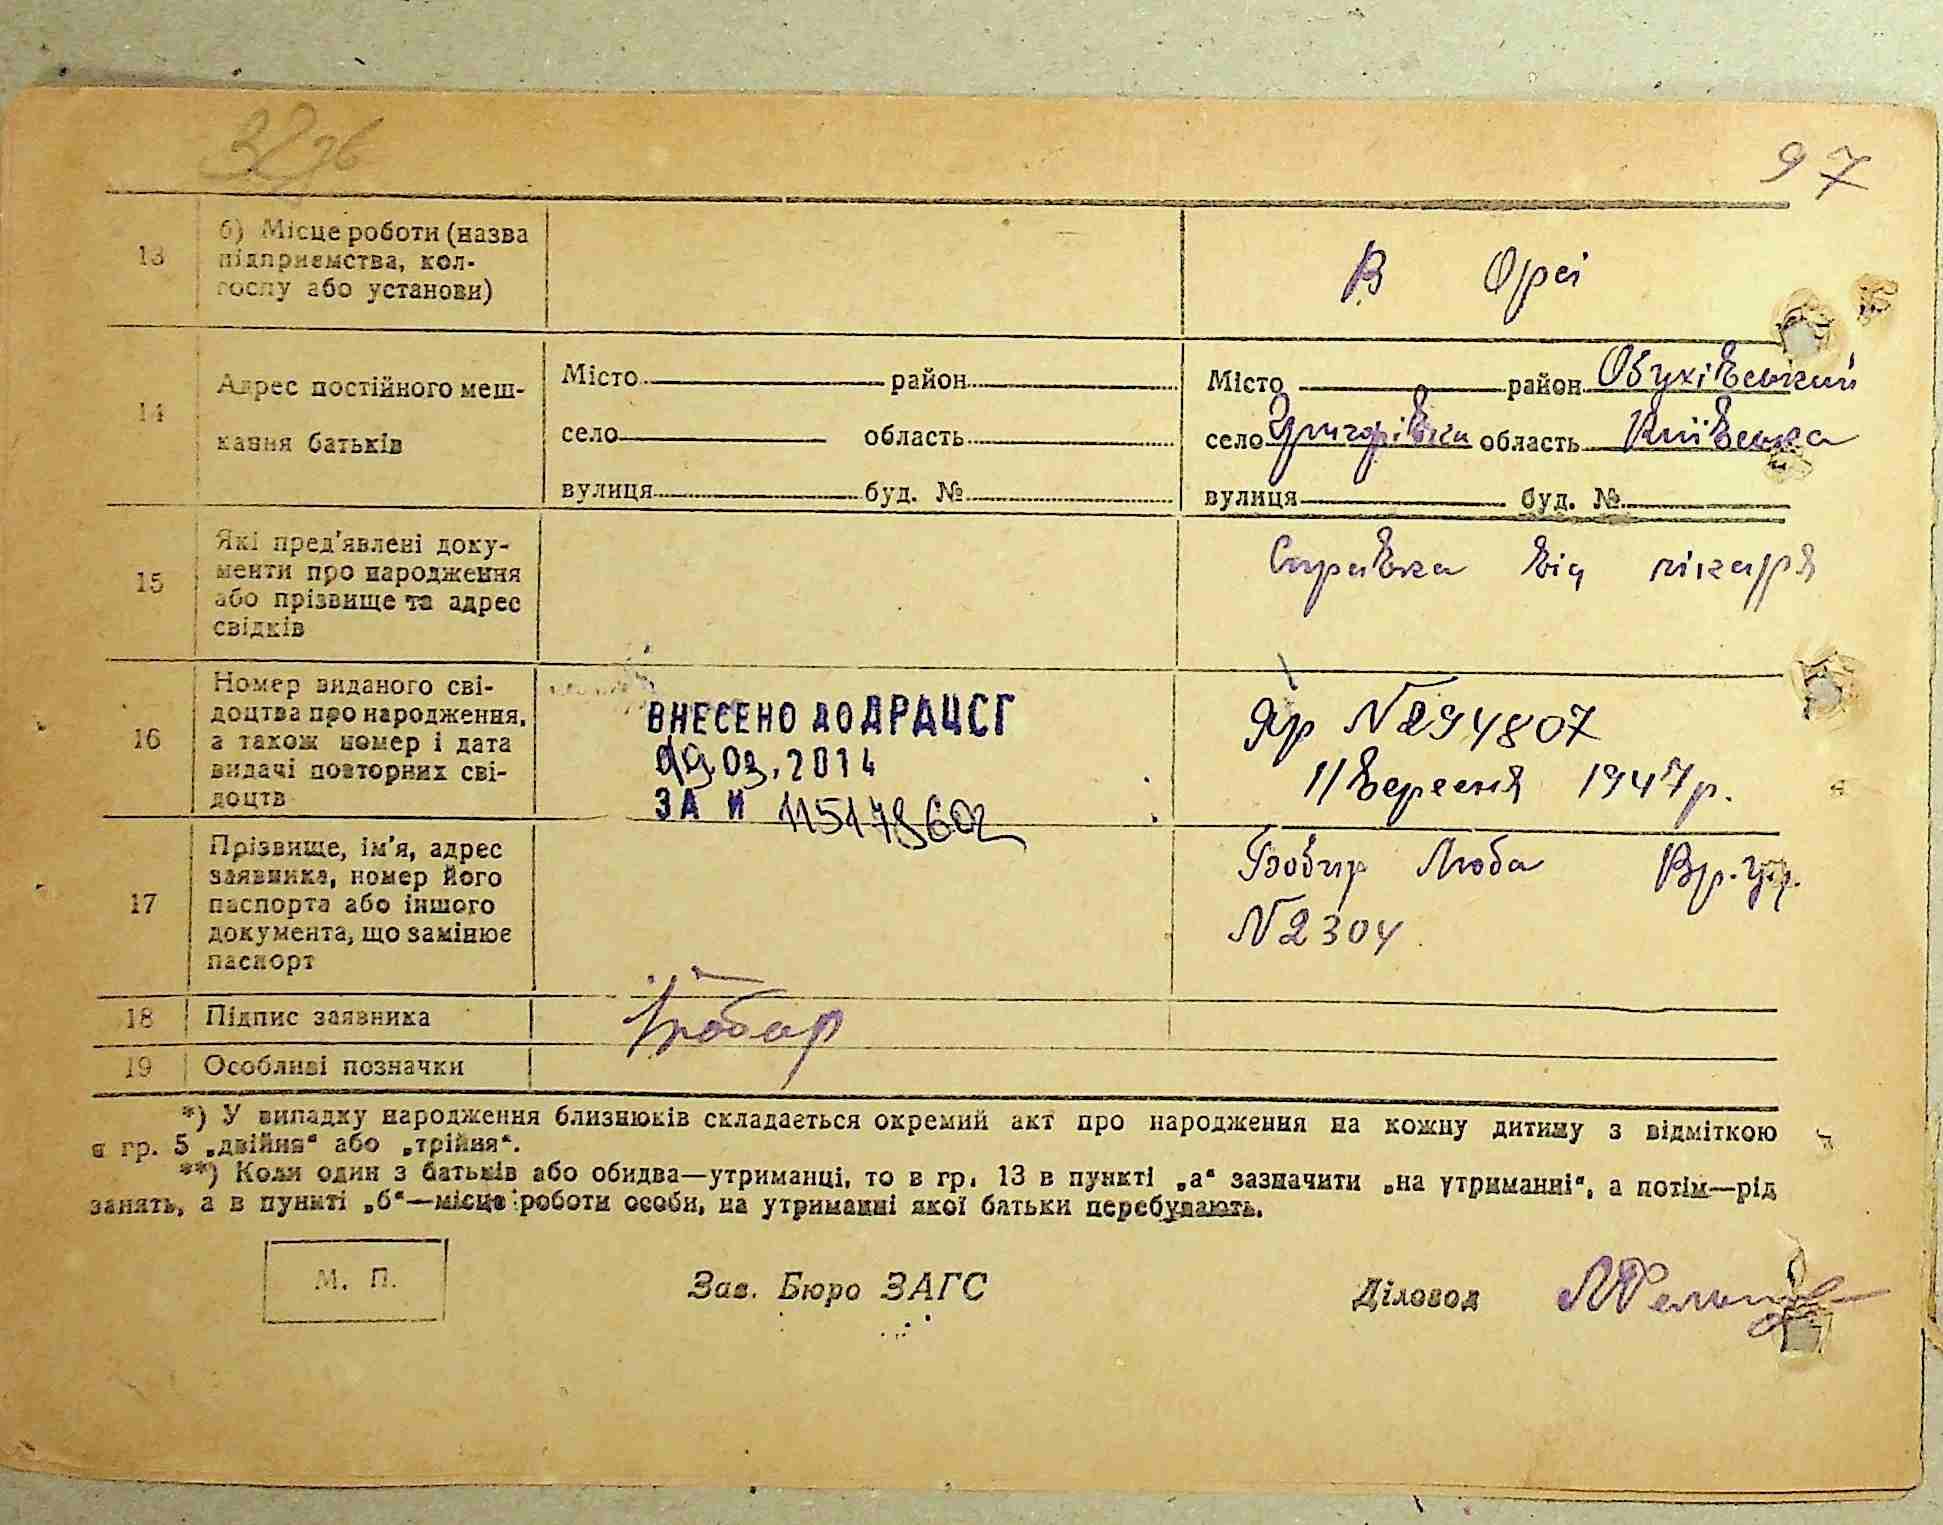 97
13
б) Місце роботи (назва
підприємства, кол-
госпу або установи)
В
14
Адрес постійного меш-
кання батьків
Місто район
село область
вулиця буд. №
Місто район Обухівський
село Григорівка область Київська
вулиця буд. №
15
Які пред'явлені доку-
менти про народження
або прізвище та адрес
свідків
Справка від лікаря
16
Номер виданого сві-
доцтва про народження,
а також номер і дата
видачі повторних сві-
доцтв
ВНЕСЕНО ДО ДРАЦСГ
09.03.2014
ЗА №
№ 294807
11 Вересня 1947 р.
17
Прізвище, ім'я, адрес
заявника, номер його
паспорта або іншого
документа, що замінює
паспорт
Бобир Люба
№ 2304
18 Підпис заявника
19 Особливі позначки
*) У випадку народження близнюків складається окремий акт про народження на кожну дитину з відміткою
в гр. 5 „двійня“ або „трійня“.
**) Коли один з батьків або обидва—утриманці, то в гр. 13 в пункті „а“ зазначити „на утриманні“, а потім—рід
занять, а в пункті „б“—місце роботи особи, на утриманні якої батьки перебувають.
М. П.
Зав. Бюро ЗАГС
Діловод